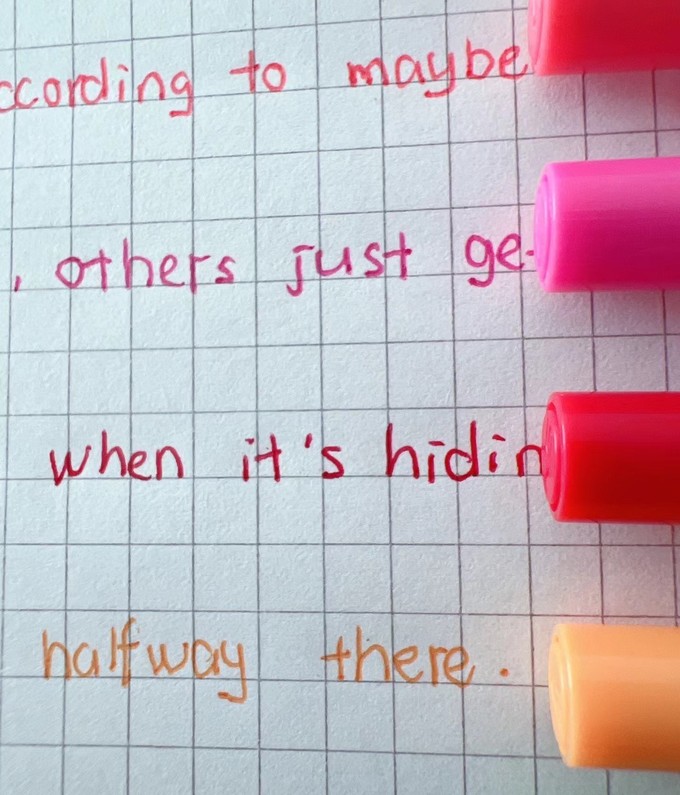 ccording to maybe
, others just ge
when it's hidin
halfway there.